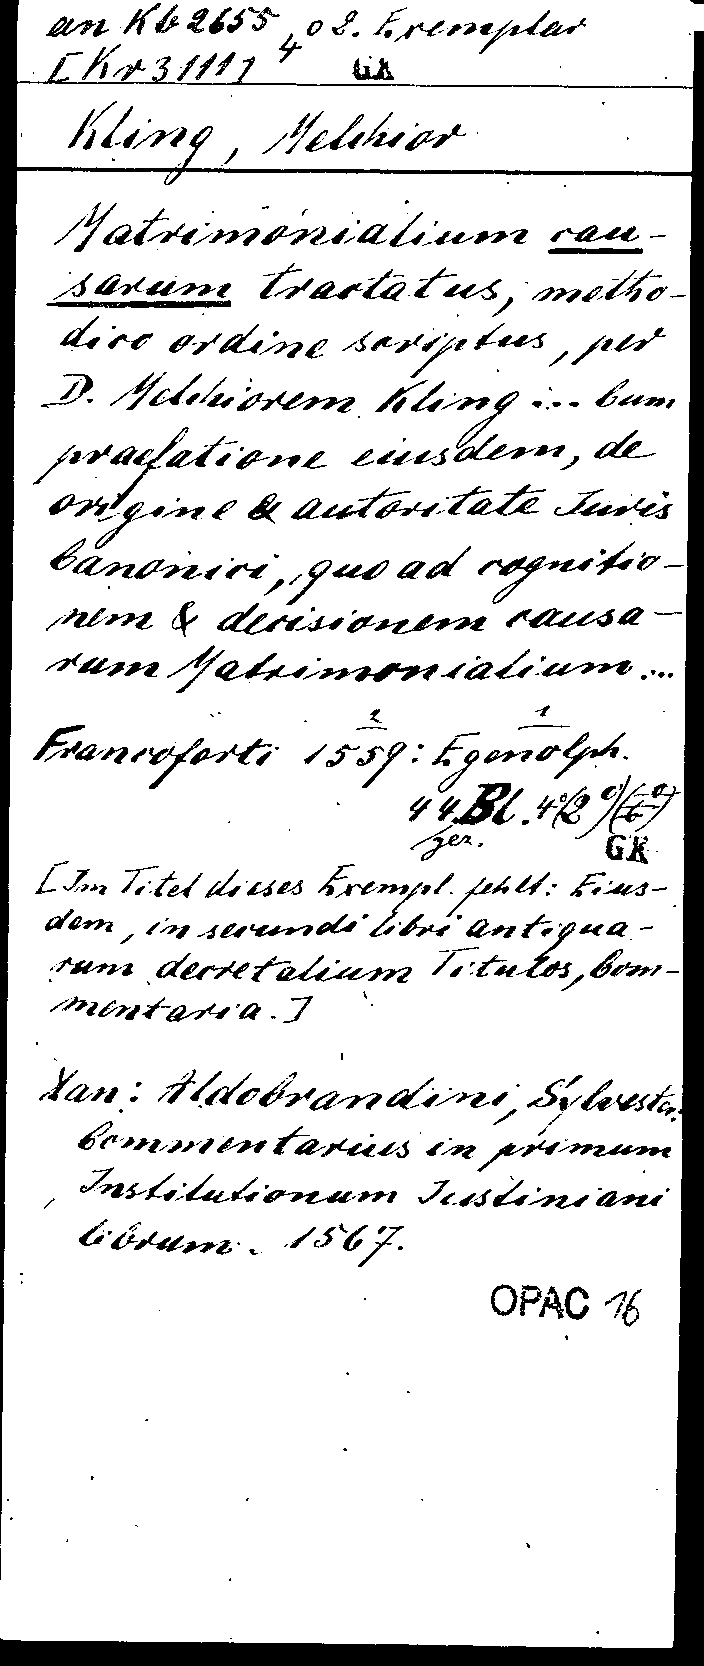 an Kb 2655, 4° 2. Exemplar
[Kr 3111] GK
Kling, Melchior
Matrimonialium cau-
sarum tractatus, metho-
dico ordine scriptus, per
D. Melchiorem Kling ... Cum
praefatione eiusdem, de
origine & autoritate Iuris
Canonici, quo ad cognitio-
nem & decisionem causa-
rum Matrimonialium ...
Francoforti 1559: Egenolph.
44 Bl. 4°(2°)
gez. GK
[Im Titel dieses Exempl. fehlt: Eius-
dem, in secundi libri antiqua-
rum decretalium Titulos, Com-
mentaria.]
Xan: Aldobrandini, Sylvester:
Commentarius in primum
Institutionum Iustiniani
librum. 1567.
OPAC 16